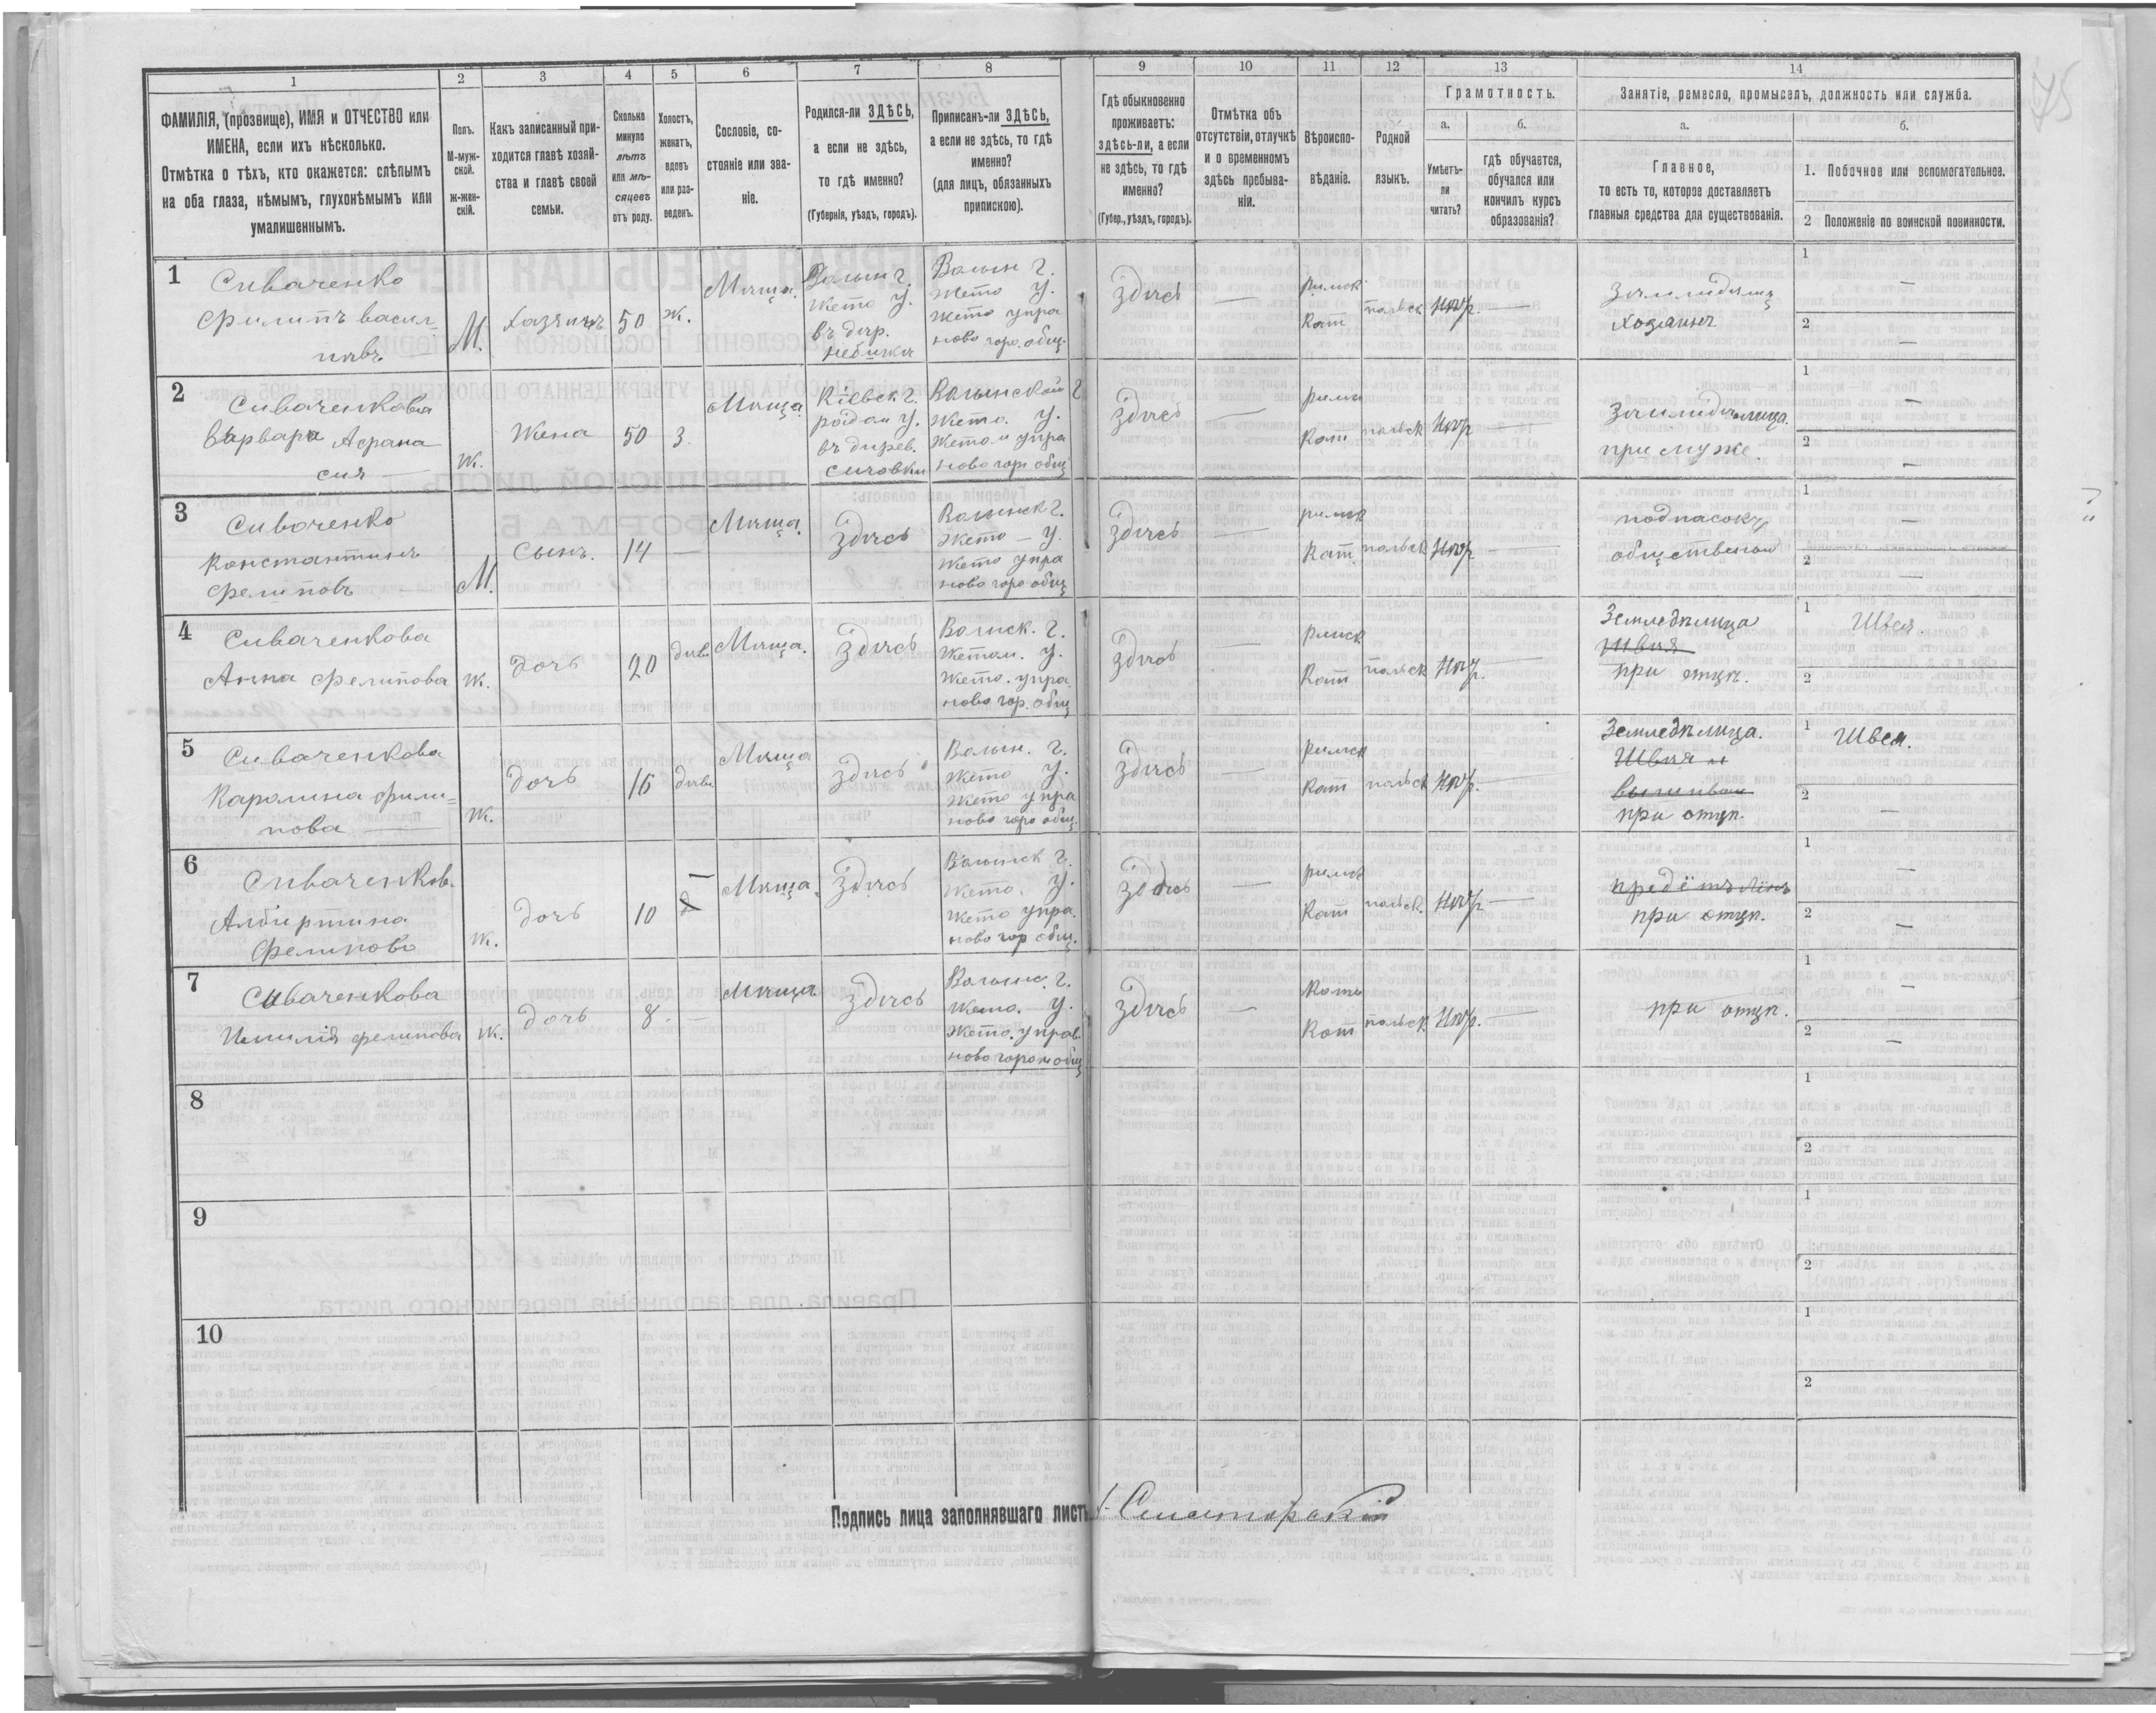 75
1 2 3 4 5 6 7 8 9 10 11 12 13 14
ФАМИЛІЯ, (прозвище), ИМЯ и ОТЧЕСТВО или
ИМЕНА, если ихъ нѣсколько.
Отмѣтка о тѣхъ, кто окажется: слѣпымъ
на оба глаза, нѣмымъ, глухонѣмымъ или
умалишеннымъ.
Полъ.
М-муж-
ской.
ж-жен-
скій.
Какъ записанный при-
ходится главѣ хозяй-
ства и главѣ своей
семьи.
Сколько
минуло
лѣтъ
или мѣ-
сяцевъ
отъ роду.
Холостъ,
женатъ,
вдовъ
или раз-
веденъ.
Сословіе, со-
стояніе или зва-
ніе.
Родился-ли ЗДѢСЬ,
а если не здѣсь,
то гдѣ именно?
(Губернія, уѣздъ, городъ).
Приписанъ-ли ЗДѢСЬ,
а если не здѣсь, то гдѣ
именно?
(для лицъ, обязанныхъ
припискою).
Гдѣ обыкновенно
проживаетъ:
здѣсь-ли, а если
не здѣсь, то гдѣ
именно?
(Губер., уѣздъ, городъ).
Отмѣтка объ
отсутствіи, отлучкѣ
и о временномъ
здѣсь пребыва-
ніи.
Вѣроиспо-
вѣданіе.
Родной
языкъ.
Грамотность.
а.
Умѣетъ-
ли
читать?
б.
гдѣ обучается,
обучался или
кончилъ курсъ
образованія?
Занятіе, ремесло, промыселъ, должность или служба.
а.
Главное,
то есть то, которое доставляетъ
главныя средства для существованія.
б.
1. Побочное или вспомогательное.
2 Положеніе по воинской повинности.
1
Сиваченко
Филипъ васил
М.
50
ж.
Мѣща.
Волын г.
жето у.
въ дер.
Волын г.
жето у.
жето упра
ново горо. общ.
здѣсь
—
римск
Кат
польск
—
хозяинъ
1 —
2 —
2
Сиваченкова
Варвара Афана
сия
ж.
Жена
50
З.
Мѣща
Кіевск г.
въ дерев.
Волынской г
Жето. у.
Жетом упра
ново гор общ
здѣсь
—
римск
Кат
польск
при муже.
1 —
2 —
3
Сиваченко
Константинъ
Фелиповъ
М.
Сынъ.
14
—
Мѣща.
здѣсь
Волынск г.
Жето — у.
Жето упра
ново горо общ
здѣсь
—
римск
Кат
польск
—
подпасокъ
общественой
1 —
2 —
4
Сиваченкова
Анна Фелипова
ж.
дочь
20
дѣв.
Мѣща.
здѣсь
Волнск. г.
Жетом. у.
Жето. упра.
ново гор. общ
здѣсь
—
римск
Кат
польск
—
Земледѣлица
Швея
при отцѣ.
1 Швея.
2
5
Сиваченкова
Каролина фили=
пова
ж.
дочь
16
дѣв.
Мѣща
здѣсь
Волын. г.
жето у.
жето упра
ново горо общ.
здѣсь
—
римск
Кат
польск
—
Земледѣлица.
Швея и
при отцѣ.
1 Швея.
2 —
6
Сиваченков.
Албертина
Фелипово
ж.
дочь
10
—
Мѣща.
здѣсь
Волынск г.
жето. у.
жето упра.
ново гор общ.
здѣсь
—
римск
Кат
польск.
—
при отцѣ.
1 —
2 —
7
Сиваченкова
Имилія фелипова
ж.
дочь
8.
—
Мѣща
здѣсь
Волынс. г.
Жето. у.
Жето. управ.
ново горо общ
здѣсь
—
Кат
польск.
—
при отцѣ.
1 —
2 —
8
1
2
9
1
2
10
1
2
Подпись лица заполнявшаго листъ